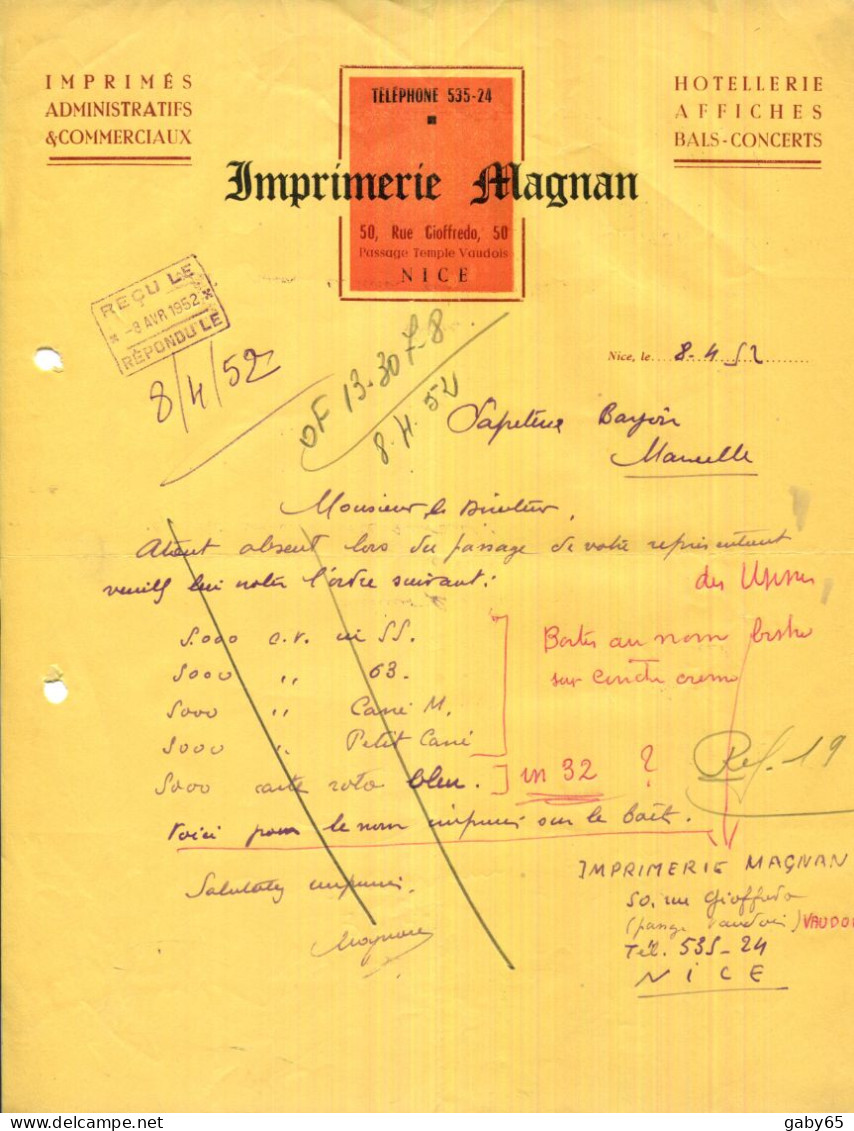 IMPRIMÉS
ADMINISTRATIFS
& COMMERCIAUX
TÉLÉPHONE 535-24
HOTELLERIE
AFFICHES
BALS-CONCERTS
Imprimerie Magnan
50, Rue Gioffredo, 50
Passage Temple Vaudois
NICE
REÇU LE
-8 AVR 1952
RÉPONDU LE
8/4/52
OF 13-30 7-8
8.4.52
Nice, le 8-4 52
Marseille
Monsieur le Directeur,
absent lors du passage de votre représentant
lui noter l'ordre suivant:
des Usines
5.000 c.v. in 55.
5000 " 63.
5000 " Carré M.
5000 " Petit Carré
5000 carte roto bleu.
Boites au nom bistre
sur crème
in 32 ?
Ref. 19
Voici pour le nom imprimé sur la boite.
IMPRIMERIE MAGNAN
50, rue Gioffredo
(passage vaudois) VAUDOI
Tél. 535-24
NICE
Magnan
gaby65